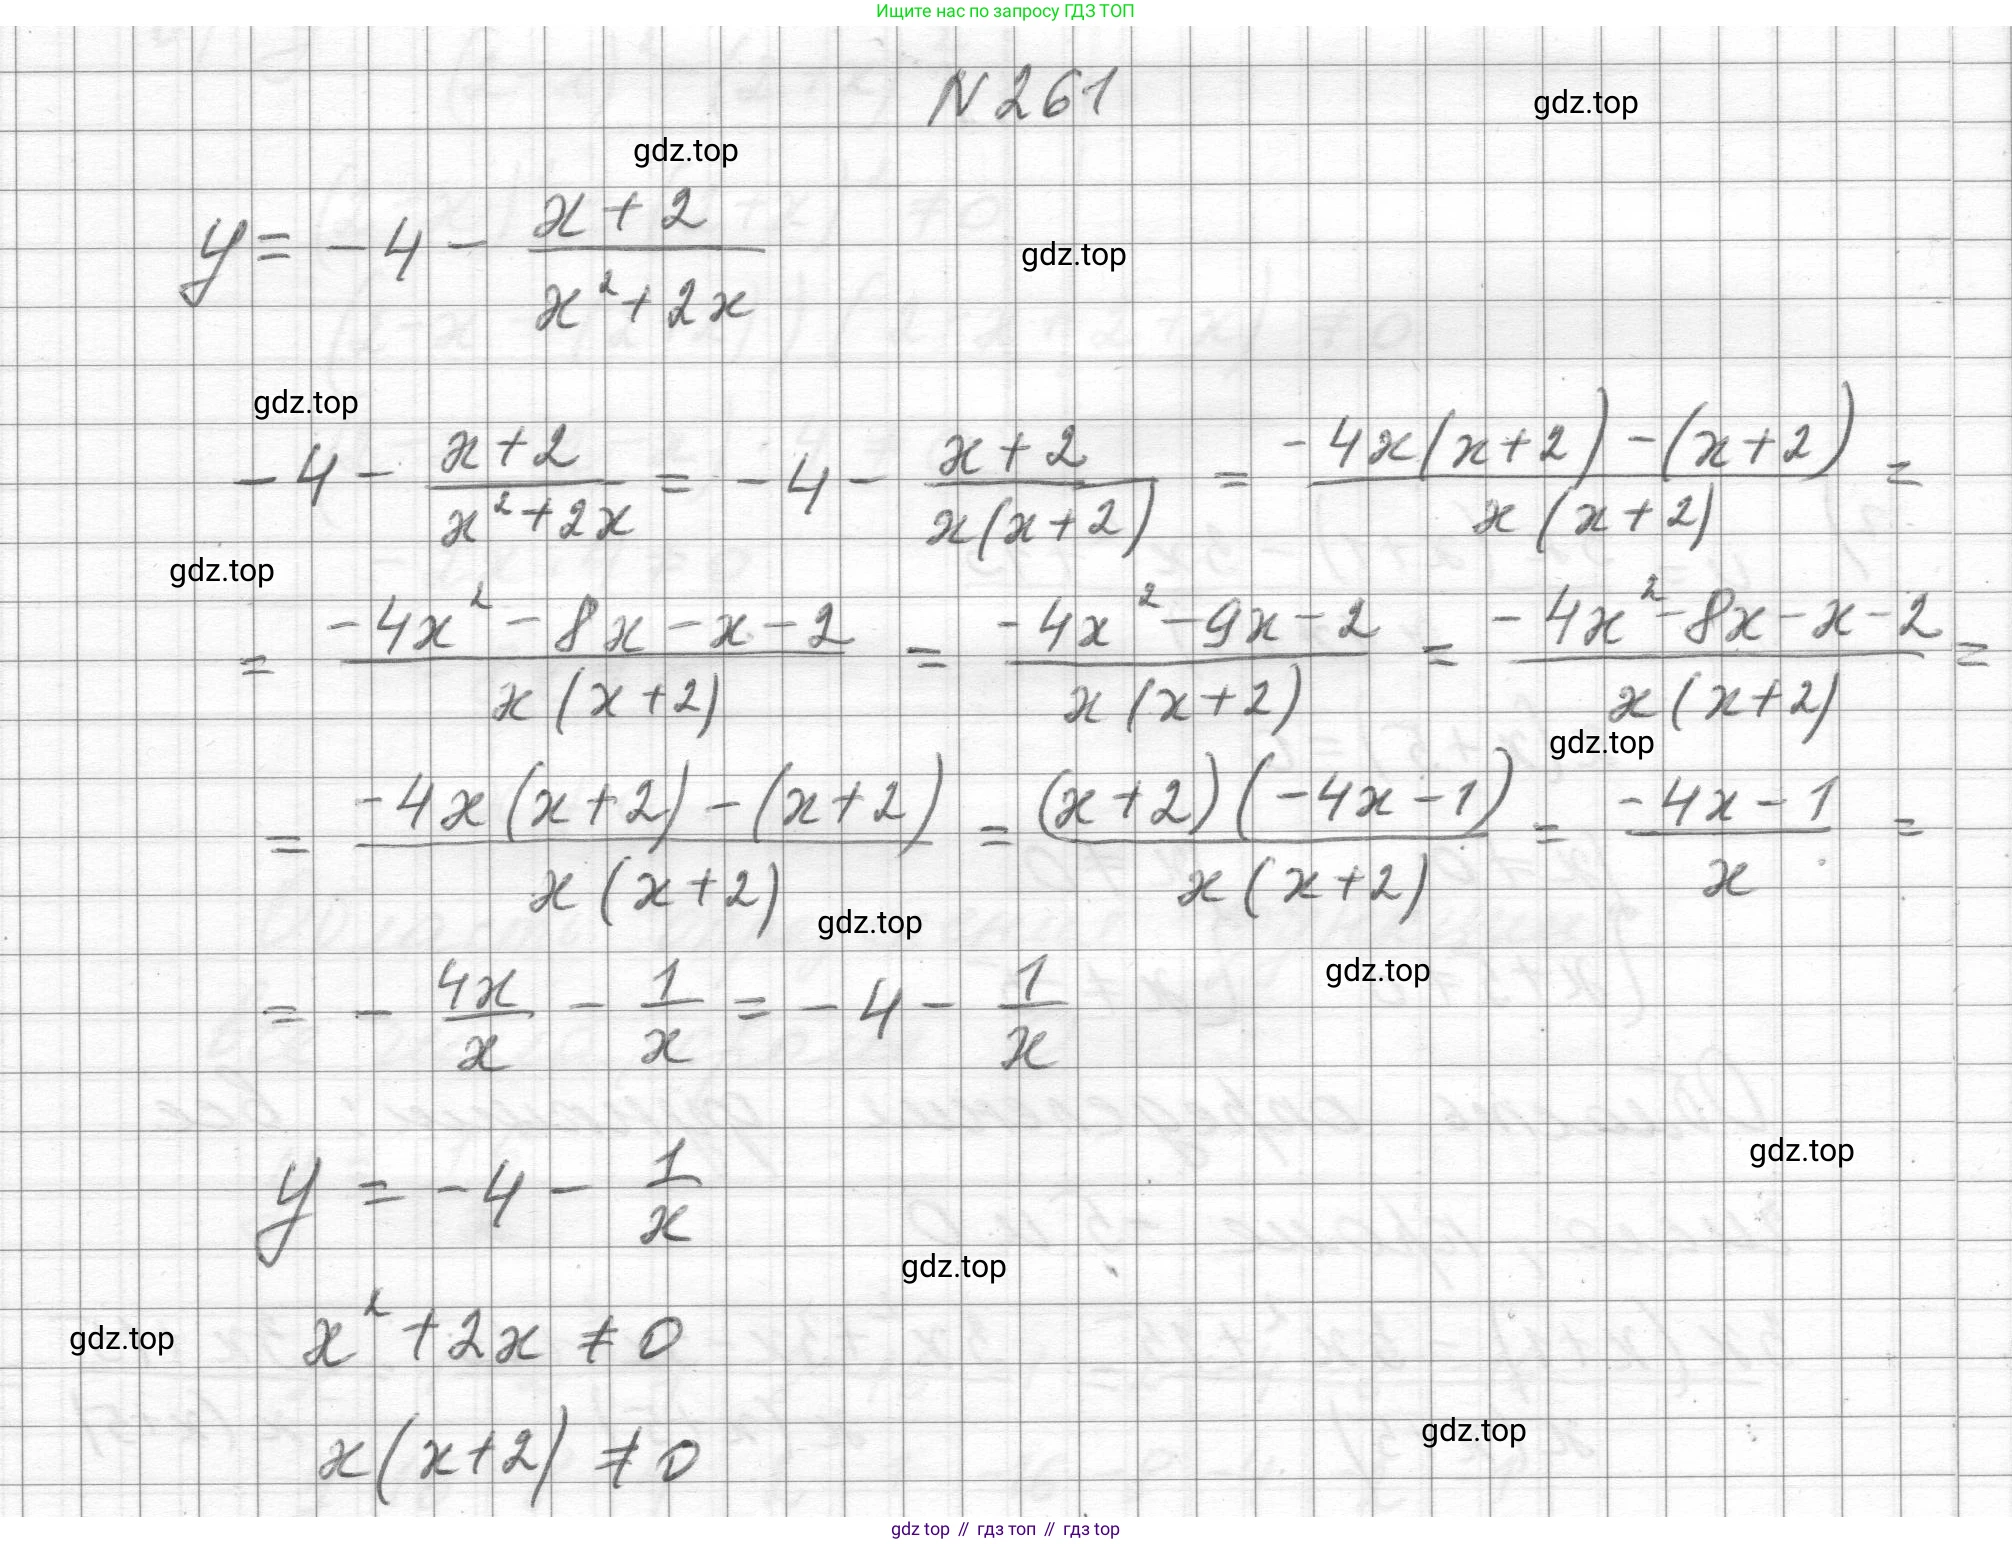 Ищите нас по запросу ГДЗ ТОП
N 261
gdz.top
gdz.top
y = -4 - (x+2)/(x²+2x)
gdz.top
gdz.top
-4 - (x+2)/(x²+2x) = -4 - (x+2)/(x(x+2)) = (-4x(x+2)-(x+2))/(x(x+2)) =
gdz.top
= (-4x²-8x-x-2)/(x(x+2)) = (-4x²-9x-2)/(x(x+2)) = (-4x²-8x-x-2)/(x(x+2)) =
gdz.top
= (-4x(x+2)-(x+2))/(x(x+2)) = ((x+2)(-4x-1))/(x(x+2)) = (-4x-1)/x =
gdz.top
gdz.top
= - 4x/x - 1/x = -4 - 1/x
gdz.top
y = -4 - 1/x
gdz.top
gdz.top
x²+2x ≠ 0
gdz.top
x(x+2) ≠ 0
gdz top // гдз топ // гдз top